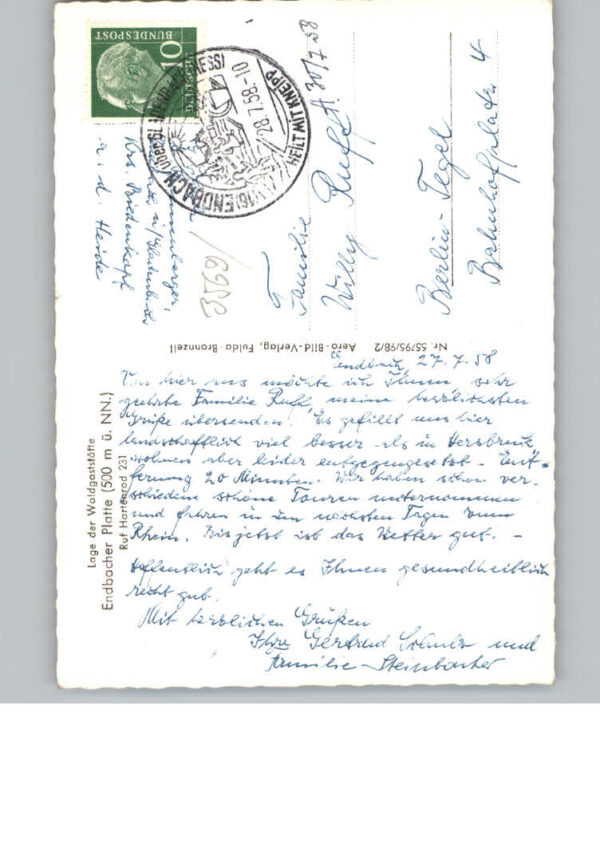 Lage der Waldgaststätte
Endbacher Platte (500 m ü. NN.)
Ruf Hartenrod 231
Endbach, 27.7.58
Von hier aus möchte ich Ihnen, sehr
geehrte Familie Ruff, meine herzlichsten
Grüße übersenden. Es gefällt uns hier
landschaftlich viel besser als in Hersbruck,
wohnen aber leider entgegengesetzt. Ent-
fernung 20 Minuten. Wir haben schon ver-
schiedene schöne Touren unternommen
und fahren in den nächsten Tagen zum
Rhein. Bis jetzt ist das Wetter gut. –
Hoffentlich geht es Ihnen gesundheitlich
recht gut.
Mit herzlichen Grüßen
Ihre Gertrud Schulz und
Familie Steinbacher
Nr. 55795/98/2 Aero-Bild-Verlag, Fulda-Bronnzell
10
DEUTSCHE
BUNDESPOST
ENDBACH über GLADENBACH (HESS)
28.7.58.-10
HEILT MIT KNEIPP
(16)
Krs. Biedenkopf
a. d. Heide
3569/
A. 30/7 58
Familie
Willy Ruff
Berlin-Tegel
Bahnhofplatz 4